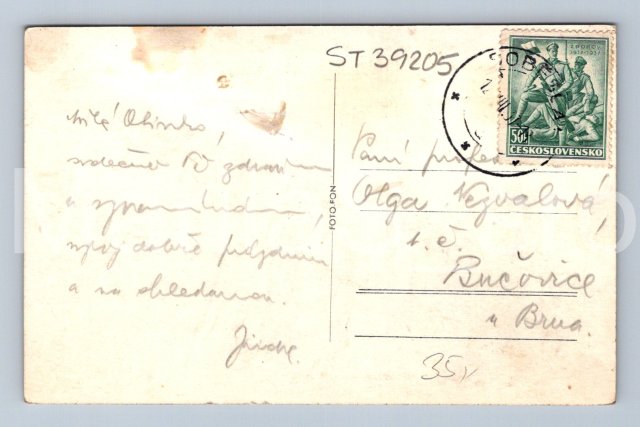 ST 39205
SOBĚSLAV
ZBOROV
1917/1937
50h
ČESKOSLOVENSKO
Milá Olinko,
srdečně Tě zdravím
a vzpomínám,
dobré
a na shledanou.
Jirka
FOTO-FON
Paní
Olga Nezvalová,
t. č.
Bučovice
u Brna.
35,-